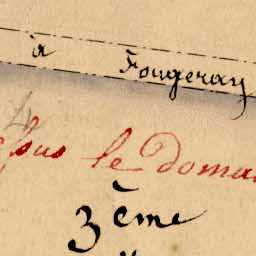 à Fougeray
sus le Doma
3ème